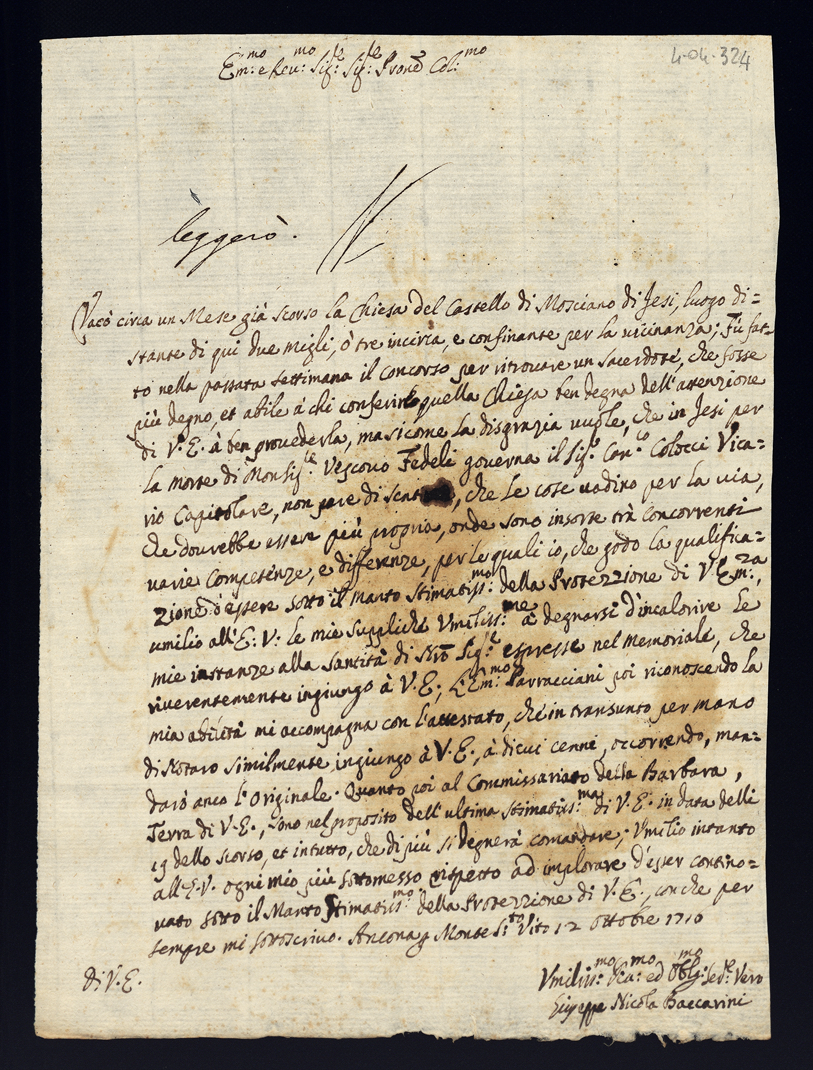 4-04-324
Em:mo e Rev:mo Sig:re Sig:re Prone Col:mo
leggerò.
Vacò circa un Mese già scorso la Chiesa del Castello di Mosciano di Jesi, luogo di=
stante di qui due migli, ò tre incirca, e confinante per la vicinanza; Fù fat=
to nella passata settimana il concorso per ritrovare un sacerdote, che fosse
più degno, et abile à chi conferire quella Chiesa ben degna dell'attenzione
di V. E. à ben provederla, ma sicome la disgrazia vuole, che in Jesi per
la morte di Monsig:re Vescovo Fedeli governa il Sig:r Can:co Colocci Vica=
rio Capitolare, non pare di, che le cose vadino per la via,
che dovrebbe essere più propria, onde sono insorte trà Concorrenti
varie Competenze, e differenze, per le quali io, che godo la qualifica=
zione d'essere sotto il Manto Stimatiss:mo della Protezzione di V. Em:za,
umilio all'E. V. le mie suppliche Vmiliss:me à degnarsi d'incalorire le
mie instanze alla Santità di Nrõ Sig:re espresse nel Memoriale, che
riverentemente ingiungo à V. E.; L'Em:mo Parracciani poi riconoscendo la
mia abilità mi accompagna con l'attestato, che in transunto per mano
di Notaro similmente ingiungo à V. E., à di cui cenni, occorrendo, man=
darò anco l'Originale. Quanto poi al Commissariato della Barbara,
Terra di V. E., sono nel proposito dell'ultima Stimatiss:ma di V. E. in data delli
19 dello scorso, et in tutto, che di più si degnerà comandare; Vmilio intanto
all'E. V. ogni mio più sottomesso rispetto ad implorare d'esser contino=
vato sotto il Manto Stimatiss:mo della Protezzione di V. E., con che per
sempre mi sottoscrivo. Ancona p Monte S:to Vito 12 Ottobre 1710
di V. E.
Vmiliss:mo ed Oblig:mo Sed:e Vero
Giuseppe Nicola Baccarini